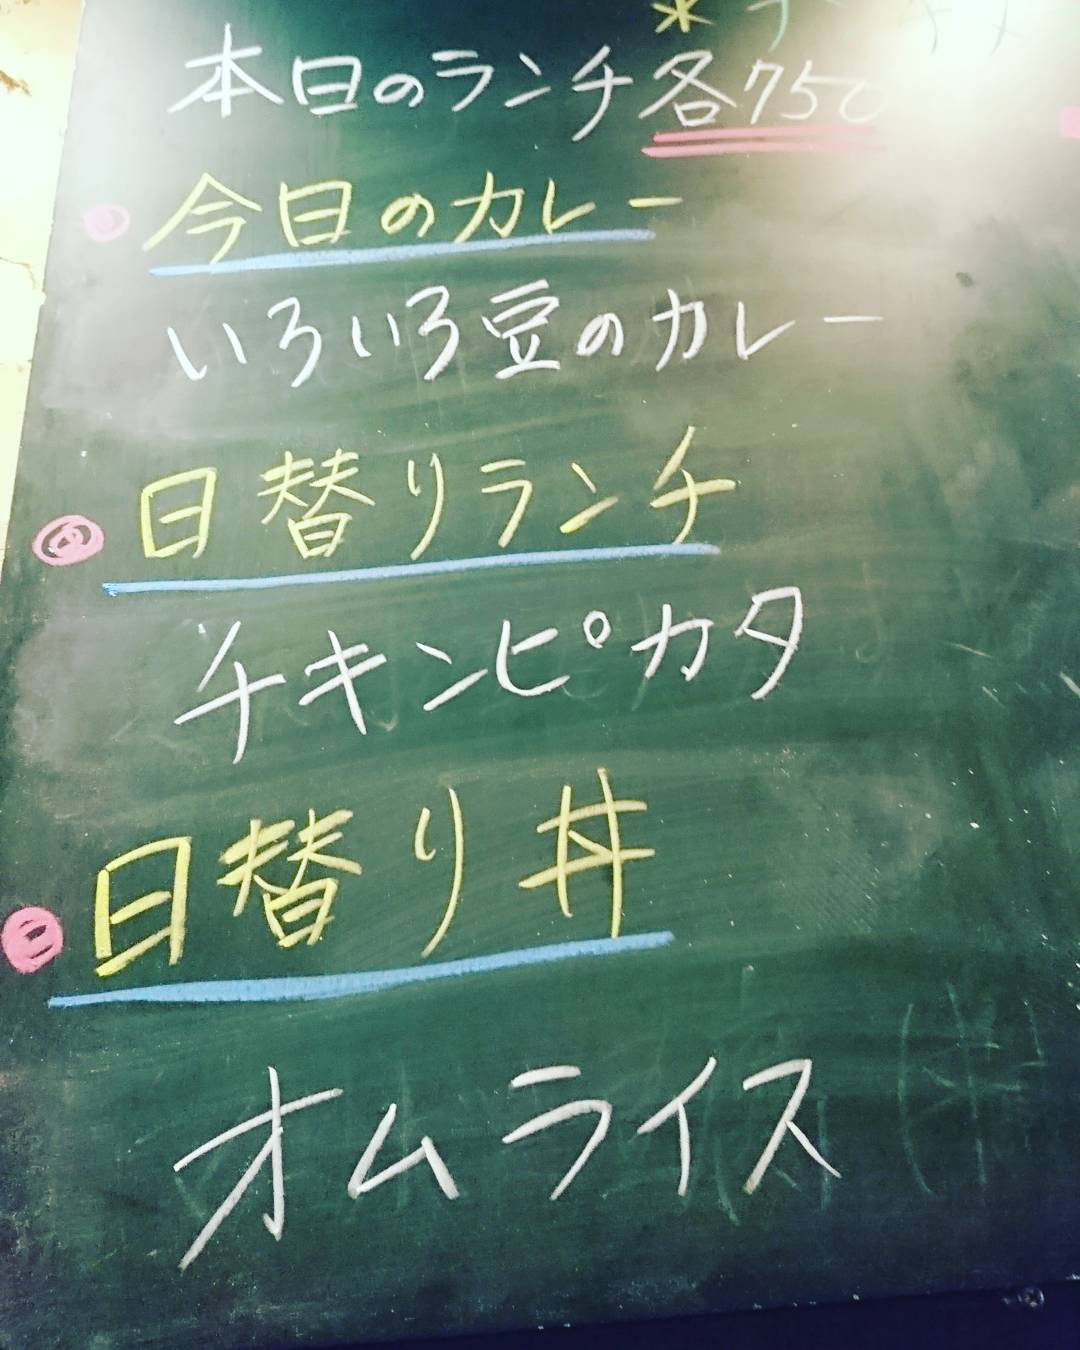 本日のランチ各750
今日のカレー
いろいろ豆のカレー
日替りランチ
チキンピカタ
日替り丼
オムライス